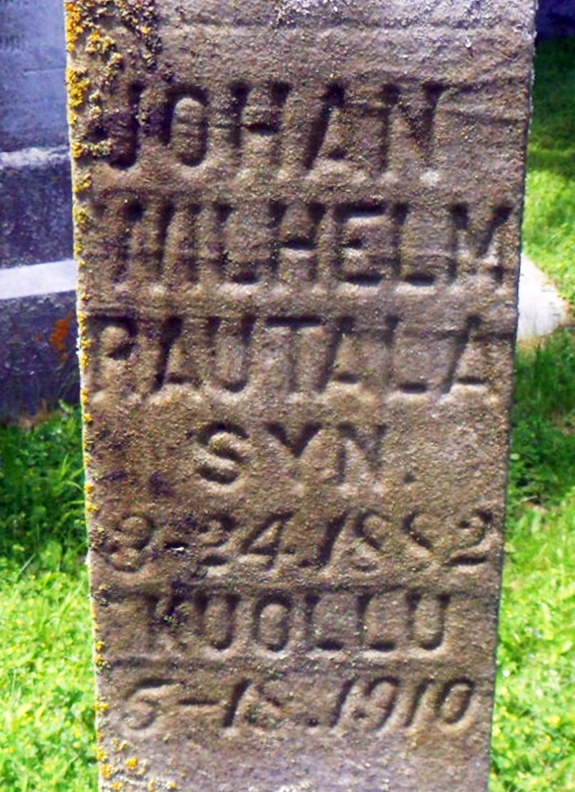 JOHAN
WILHELM
RAUTALA
SYN.
3-24.1882
KUOLLU
5-18.1910